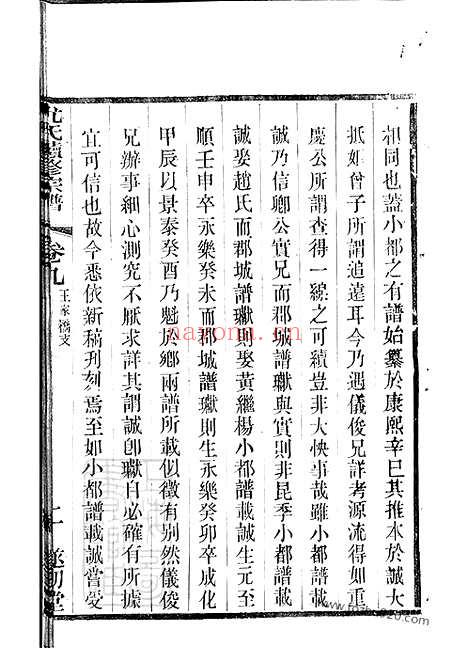 相同也蓋小都之有譜始纂於康熙辛巳其推本於誠大
抵如曾子所謂追遠耳今乃遇儀俊兄詳考源流得如重
慶公所謂查得一線之可續豈非大快事哉雖小都譜載
誠乃信卿公實兄而郡城譜瓛與實則非昆季小都譜載
誠娶趙氏而郡城譜瓛則娶黃繼楊小都譜載誠生元至
順壬申卒永樂癸未而郡城譜瓛則生永樂癸卯卒成化
甲辰以景泰癸酉乃魁於鄉兩譜所載似徵有別然儀俊
兄辦事細心測究不厭求詳其謂誠卽瓛自必確有所據
宜可信也故今悉依新稿刊刻焉至如小都譜載誠嘗受
氏續修宗譜
卷九
王家橋支
十一
堂
www.yoto920.com